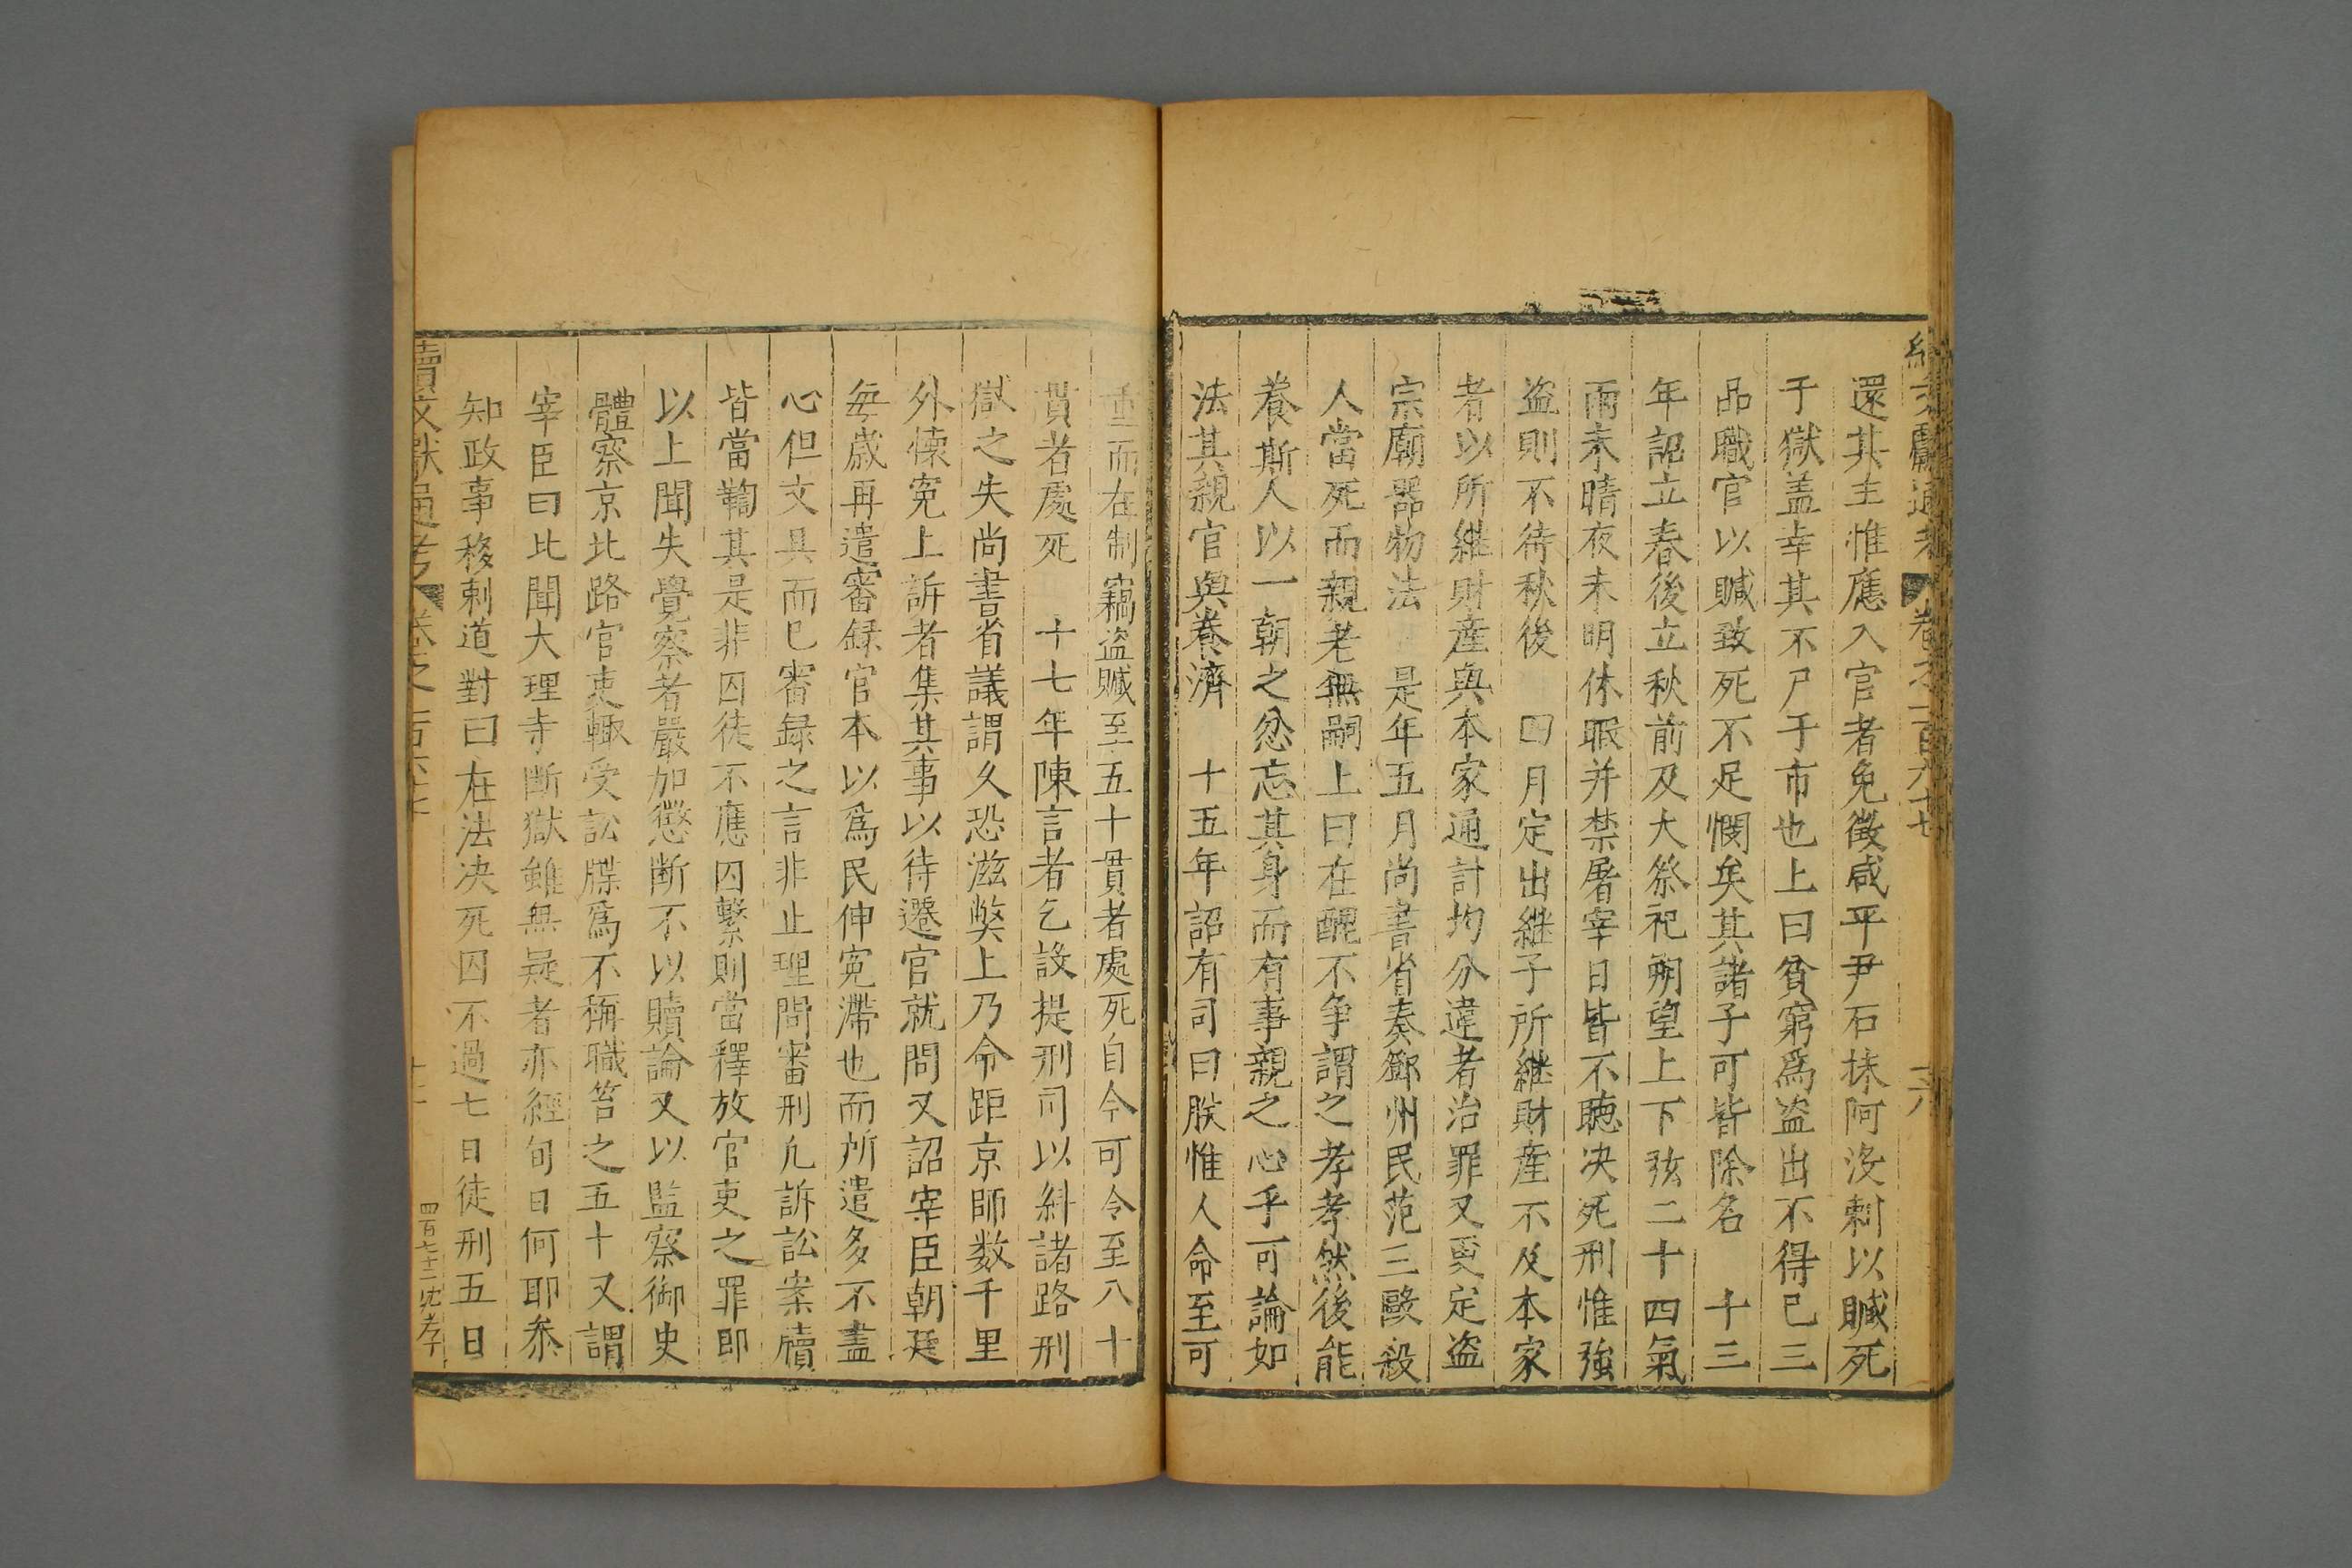 續文獻通考 卷之一百六十七
還其主惟應入官者免徵咸平尹石抹阿没剌以贓死
于獄盖幸其不尸于市也上曰貧窮爲盗出不得已三
品職官以贓致死不足憫矣其諸子可皆除名 十三
年詔立春後立秋前及大祭祀朔望上下弦二十四氣
雨未晴夜未明休暇并禁屠宰日皆不聴决死刑惟強
盗則不待秋後 四月定出継子所継財産不及本家
者以所継財産與本家通計均分違者治罪又更定盗
宗廟器物法 是年五月尚書省奏鄧州民范三毆殺
人當死而親老無嗣上曰在醜不争謂之孝孝然後能
養斯人以一朝之忿忘其身而有事親之心乎可論如
法其親官與養濟 十五年詔有司曰朕惟人命至可
重而在制竊盗贓至五十貫者處死自今可令至八十
貫者處死 十七年陳言者乞設提刑司以糾諸路刑
獄之失尚書省議謂久恐滋獘上乃命距京師数千里
外懐寃上訴者集其事以待遷官就問又詔宰臣朝廷
每歳再遣審録官本以爲民伸寃滯也而所遣多不盡
心但文具而已審録之言非止理問審刑凢訴訟案牘
皆當鞫其是非囚徒不應囚繫則當釋放官吏之罪即
以上聞失覺察者嚴加懲断不以贖論又以監察御史
體察京北路官吏輙受訟牒爲不稱職笞之五十又謂
宰臣曰比聞大理寺断獄雖無疑者亦經旬日何耶叅
知政事移剌道對曰在法决死囚不過七日徒刑五日
續文獻通考 卷之一百六十七
四百七十二 沈孝